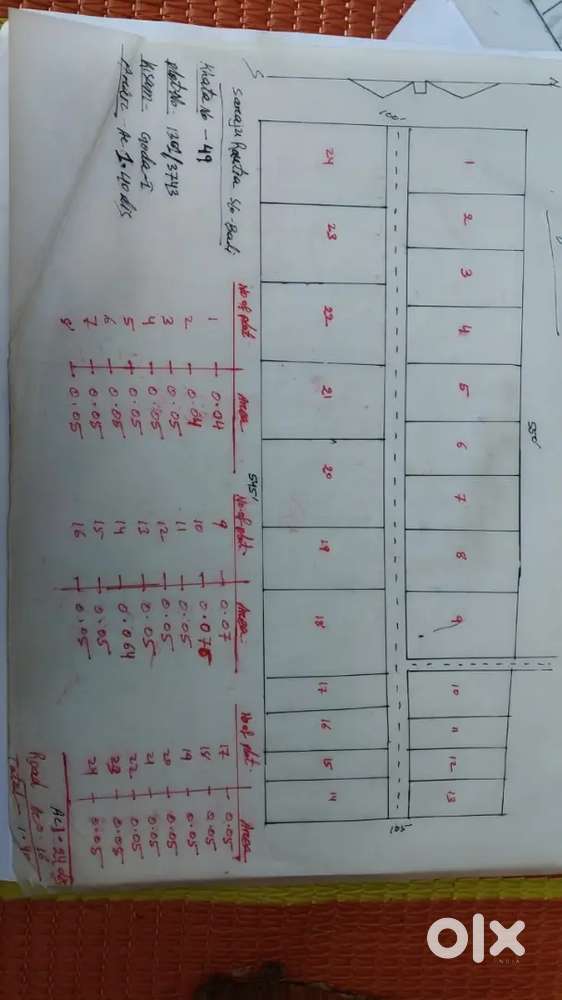 S
N
100'
530'
1
2
3
4
5
6
7
8
9
10
11
12
13
24
23
22
21
20
19
18
17
16
15
14
105'
545'
Khata No - 49
Plot No.
Kisam - Goda-I
No of plot. Area
1 - 0.04
2 - 0.04
3 - 0.05
4 - 0.05
5 - 0.05
6 - 0.05
7 - 0.05
8 - 0.05
No of plot. Area
9 - 0.07
10 - 0.075
11 - 0.05
12 - 0.05
13 - 0.05
14 - 0.064
15 - 0.05
16 - 0.05
No of plot. Area
17 - 0.05
18 - 0.05
19 - 0.05
20 - 0.05
21 - 0.05
22 - 0.05
23 - 0.05
24 - 0.05
Road
Total
olx
INDIA